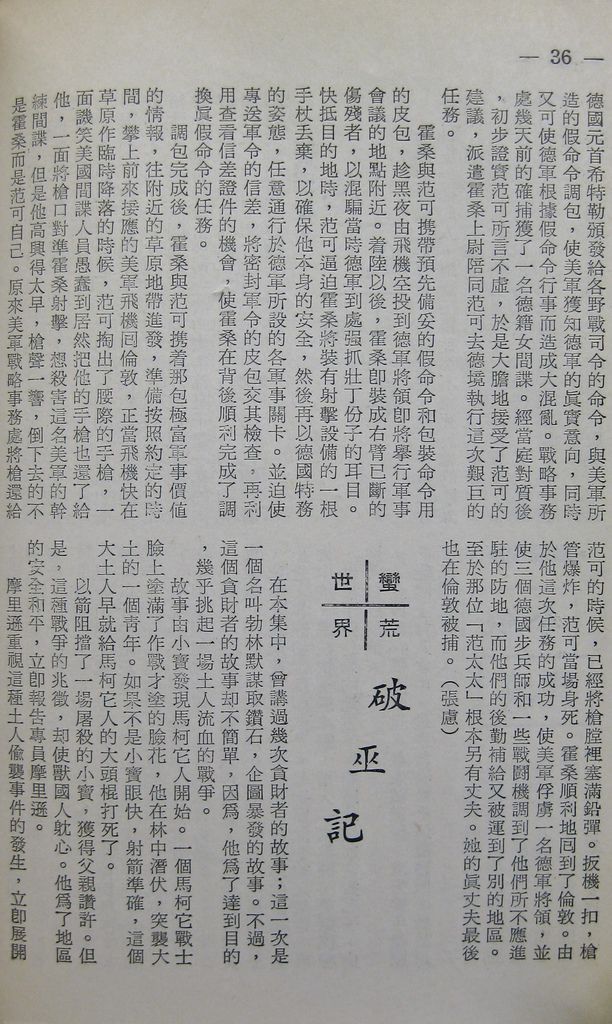 — 36 —
德國元首希特勒頒發給各野戰司令的命令，與美軍所
造的假命令調包，使美軍獲知德軍的眞實意向，同時
又可使德軍根據假命令行事而造成大混亂。戰略事務
處幾天前的確捕獲了一名德籍女間諜。經當庭對質後
，初步證實范可所言不虛，於是大膽地接受了范可的
建議，派遣霍桑上尉陪同范可去德境執行這次艱巨的
任務。
霍桑與范可携帶預先備妥的假命令和包裝命令用
的皮包，趁黑夜由飛機空投到德軍將領卽將舉行軍事
會議的地點附近。着陸以後，霍桑卽裝成右臂已斷的
傷殘者，以混騙當時德軍到處强抓壯丁份子的耳目。
快抵目的地時，范可逼迫霍桑將裝有射擊設備的一根
手杖丢棄，以確保他本身的安全，然後再以德國特務
的姿態，任意通行於德軍所設的各軍事關卡。並迫使
專送軍令的信差，將密封軍令的皮包交其檢查，再利
用查看信差證件的機會，使霍桑在背後順利完成了調
換眞假命令的任務。
調包完成後，霍桑與范可携着那包極富軍事價値
的情報，往附近的草原地帶進發，準備按照約定的時
間，攀上前來接應的美軍飛機囘倫敦，正當飛機快在
草原作臨時降落的時候，范可掏出了腰際的手槍，一
面譏笑美國間諜人員愚蠢到居然把他的手槍也還了給
他，一面將槍口對準霍桑射擊，想殺害這名美軍的幹
練間諜，但是他高興得太早，槍聲一響，倒下去的不
是霍桑而是范可自己。原來美軍戰略事務處將槍還給
范可的時候，已經將槍膛裡塞滿鉛彈。扳機一扣，槍
管爆炸，范可當場身死。霍桑順利地囘到了倫敦。由
於他這次任務的成功，使美軍俘虜一名德軍將領，並
使三個德國步兵師和一些戰鬪機調到了他們所不應進
駐的防地，而他們的後勤補給又被運到了別的地區。
至於那位「范太太」根本另有丈夫。她的眞丈夫最後
也在倫敦被捕。（張慮）
蠻荒
世界
破巫記
在本集中，曾講過幾次貪財者的故事；這一次是
一個名叫勃林默謀取鑽石，企圖暴發的故事。不過，
這個貪財者的故事却不簡單，因爲，他爲了達到目的
，幾乎挑起一場土人流血的戰爭。
故事由小寶發現馬柯它人開始。一個馬柯它戰士
臉上塗滿了作戰才塗的臉花，他在林中潛伏，突襲大
土的一個靑年。如果不是小寶眼快，射箭準確，這個
大土人早就給馬柯它人的大頭棍打死了。
以箭阻擋了一場屠殺的小寶，獲得父親讚許。但
是，這種戰爭的兆徵，却使獸國人躭心。他爲了地區
的安全和平，立卽報告專員摩里遜。
摩里遜重視這種土人偸襲事件的發生，立卽展開